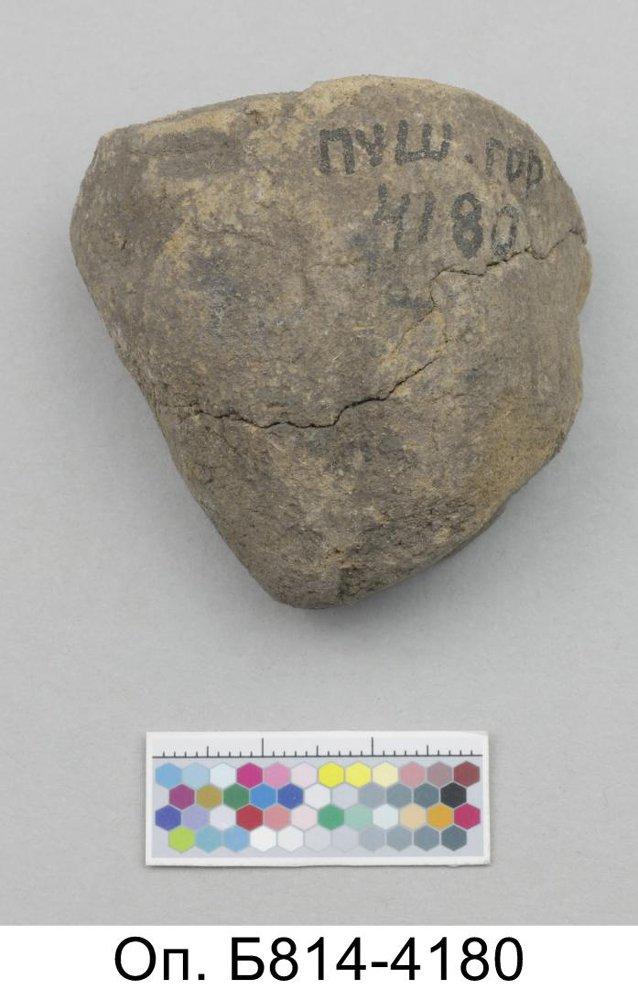 ПУШ. ГОР
4180
Оп. Б814-4180